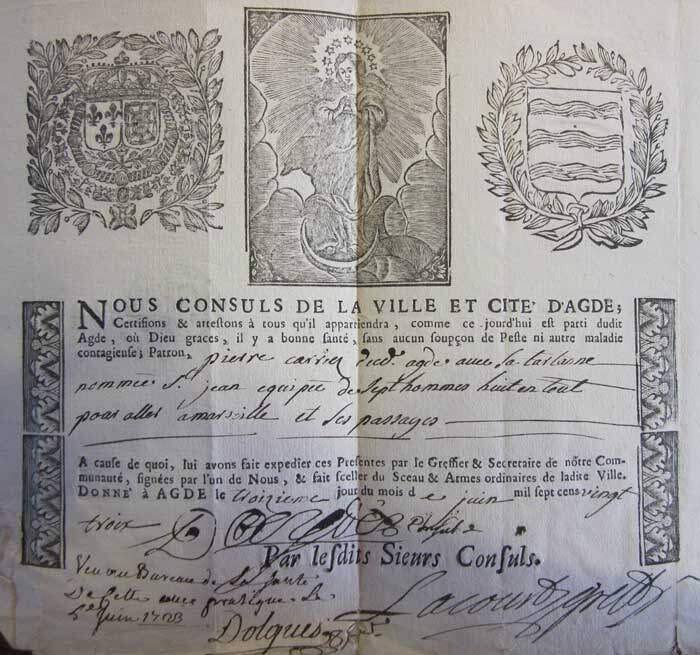 NOUS CONSULS DE LA VILLE ET CITE' D'AGDE;
Certifions & attestons à tous qu'il appartiendra, comme ce jourd'hui est parti dudit
Agde, où Dieu graces, il y a bonne santé, sans aucun soupçon de Peste ni autre maladie
contagieuse; Patron, pierre carrier dud. agde avec sa tartanne
nommée St. jean equipée de sept hommes huit en tout
pour aller a marseille et ses passages
A cause de quoi, lui avons fait expedier ces Presentes par le Greffier & Secretaire de nôtre Com-
munauté, signées par l'un de Nous, & fait sceller du Sceau & Armes ordinaires de ladite Ville.
DONNE' à AGDE le troizieme jour du mois de juin mil sept cens vingt
troix
Consul
Par lesdits Sieurs Consuls.
Veu au Bureau de la santé
De Cette avec pratique le
5e Juin 1723
Dolques